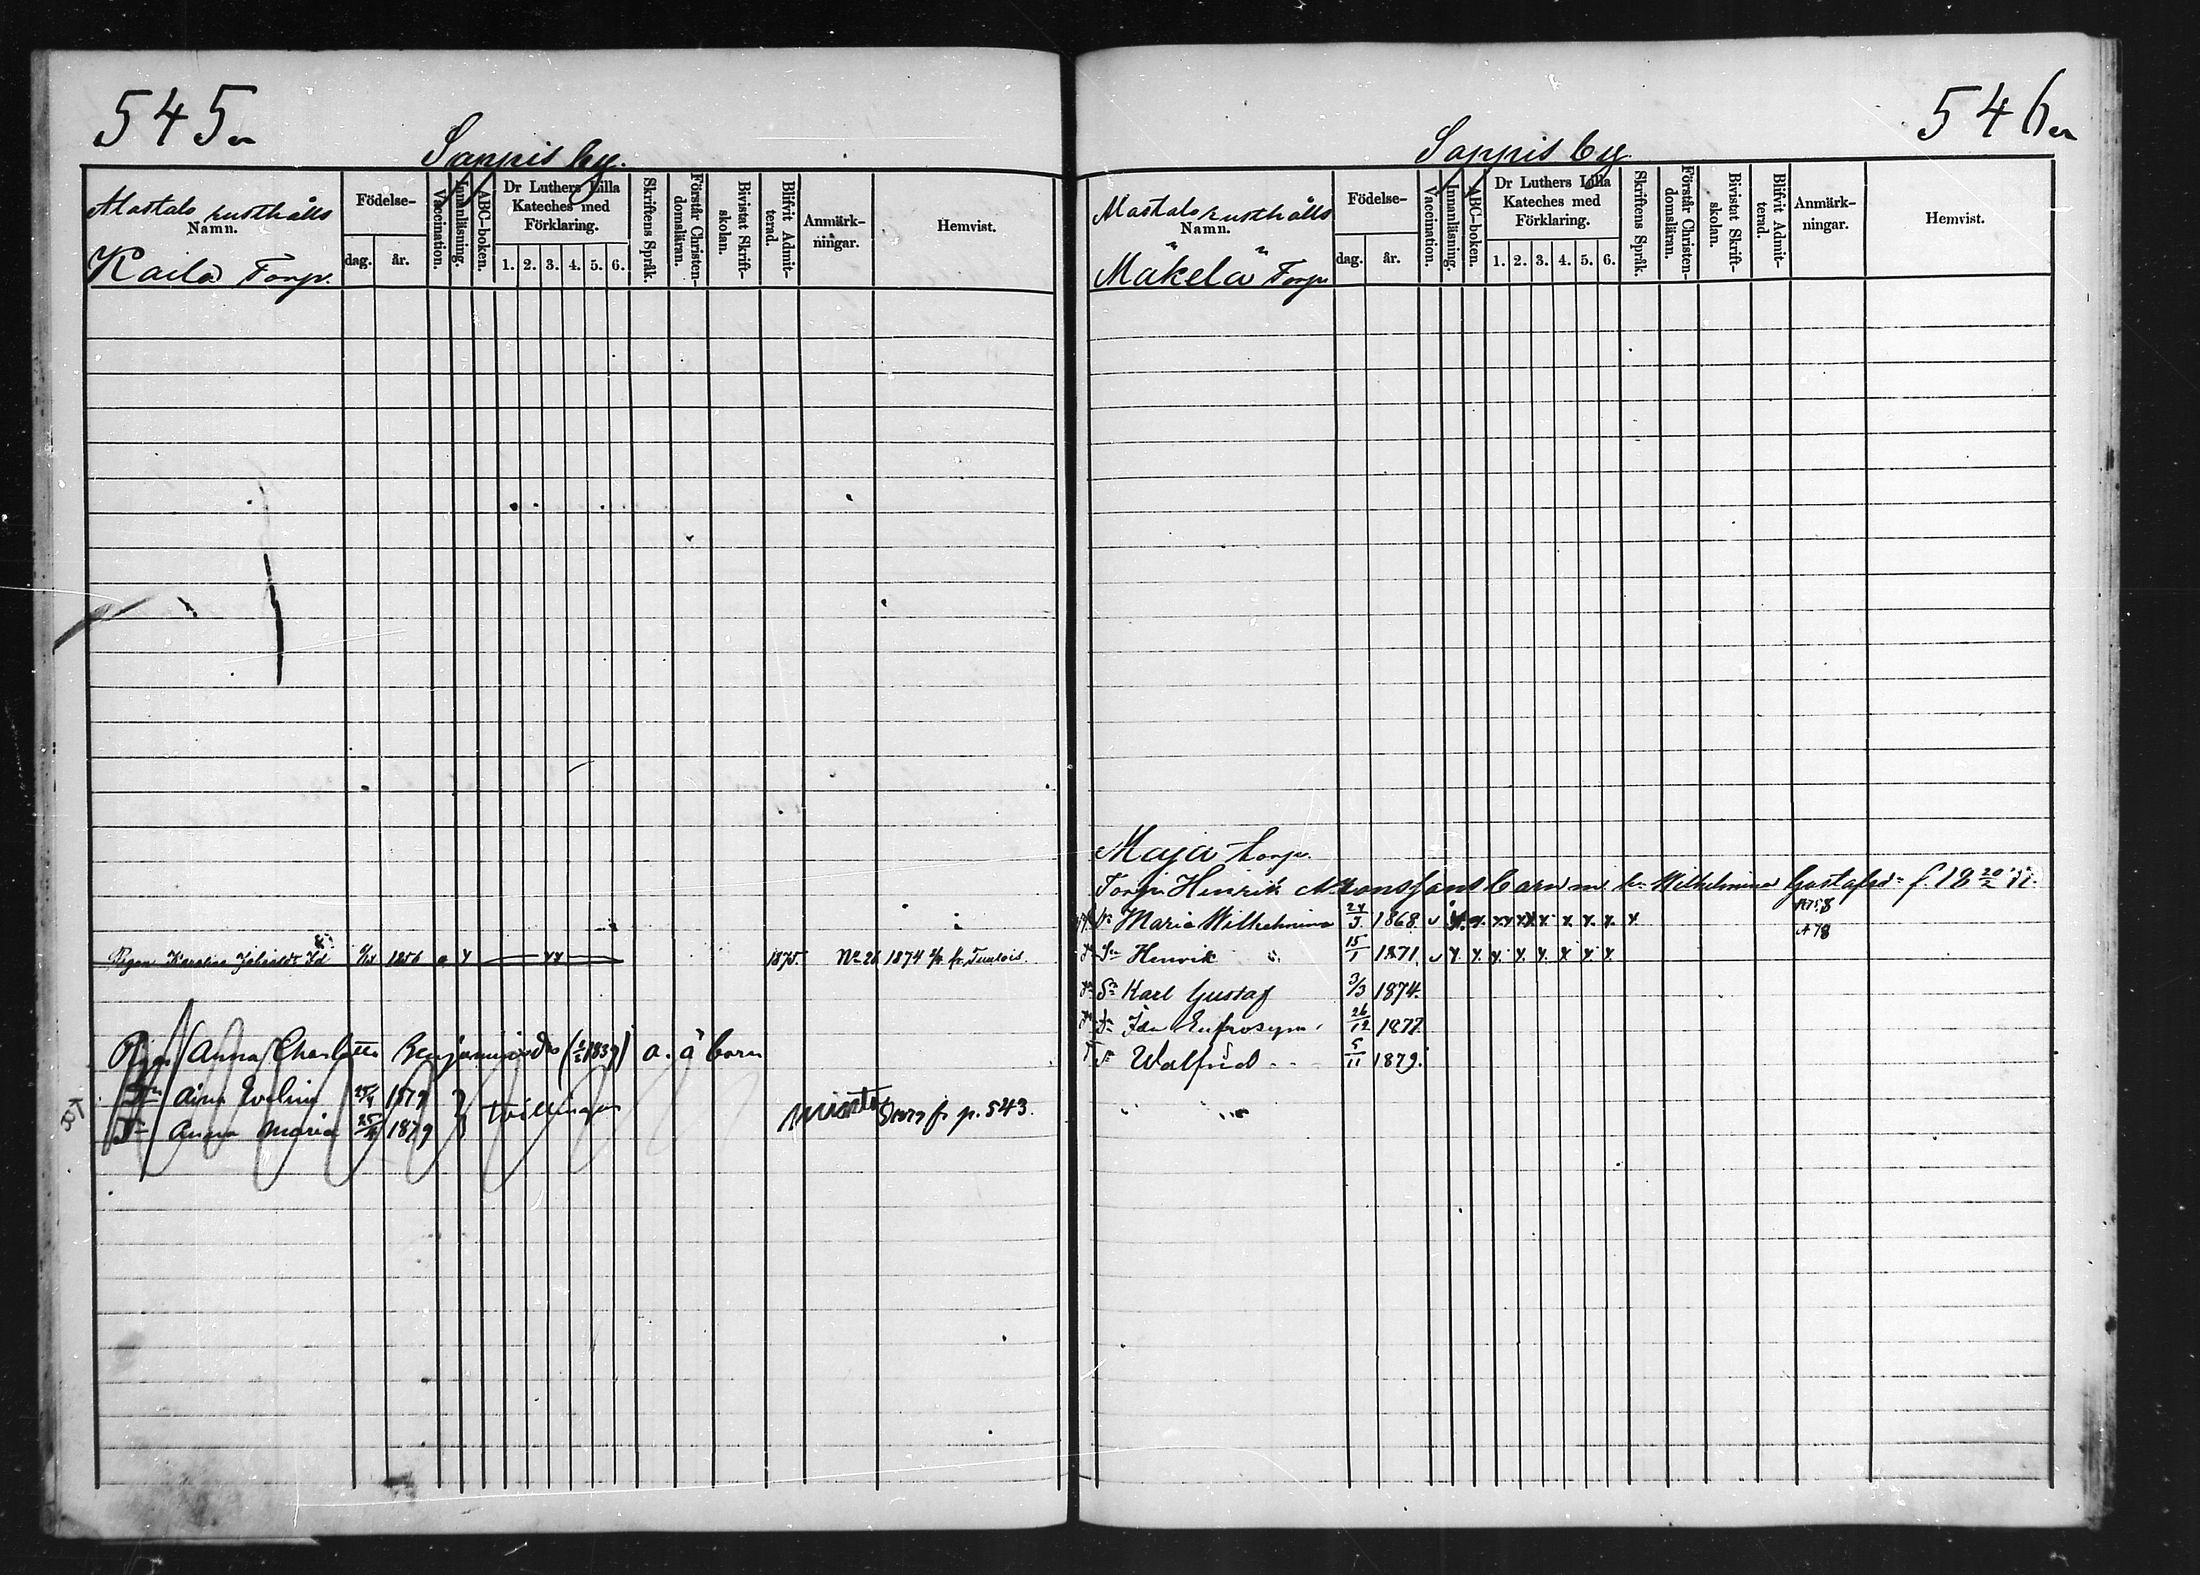 545
Sappis by.
Mastals rusthålls
Namn.
Kaila Torp.
Födelse-
dag. år.
Vaccination.
Innanläsning.
ABC-boken.
Dr Luthers Lilla
Kateches med
Förklaring.
1. 2. 3. 4. 5. 6.
Skriftens Språk.
Förstår Christen-
domsläran.
Bivistat Skrift-
skolan.
Blifvit Admit-
terad.
Anmärk-
ningar.
Hemvist.
Pigan Karolina 1856 1875. No 26 1874 fr.
Pigan Anna Charlotta Benjaminsdr 1839) a. ä barn
Dr Aina Evelina 25/4 1879
tvillingar
Dr Anna Maria 25/4 1879 fr p. 543.
546
Sappis by
Mastals rusthålls
Namn.
Mäkelä Torp
Födelse-
dag. år.
Vaccination.
Innanläsning.
ABC-boken.
Dr Luthers Lilla
Kateches med
Förklaring.
1. 2. 3. 4. 5. 6.
Skriftens Språk.
Förstår Christen-
domsläran.
Bivistat Skrift-
skolan.
Blifvit Admit-
terad.
Anmärk-
ningar.
Hemvist.
Maja torp.
Torp. Henrik barn m Wilhelmina Gustafsd f. 18 20/2
Dr Maria Wilhelmina 24/3 1868. v x. x. x x x x. x. x. x. x
A 78
Sn Henrik 15/1 1871. v x. x. x. x. x. x. x. x.
Sn Karl Gustaf 3/3 1874.
Dr Ida Eufrosyne 26/12 1877.
Walfrid 5/11 1879.